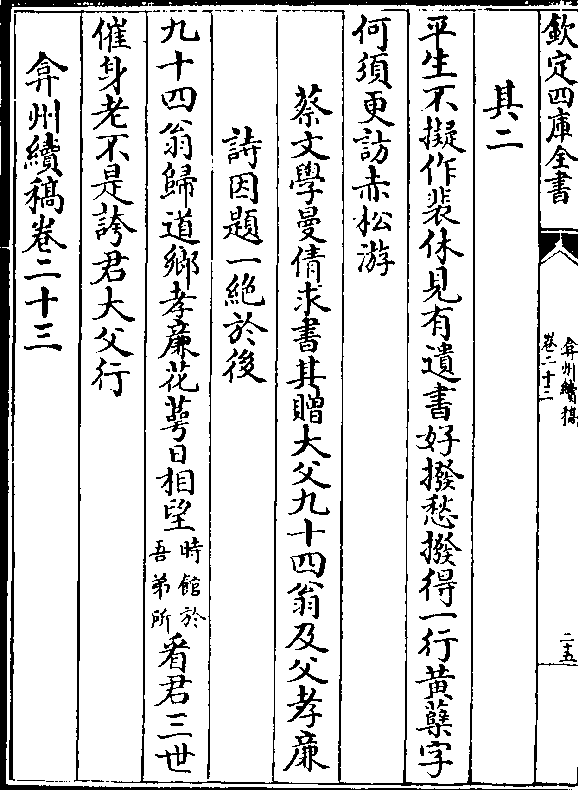 欽定四庫全書
弇州續稿
卷二十三
二十五
其二
平生不擬作裴休見有遺書好撥愁撥得一行黃蘗字
何須更訪赤松游
蔡文學曼倩求書其贈大父九十四翁及父孝廉
詩因題一絶於後
九十四翁歸道鄉孝廉花萼日相望時館於吾弟所看君三世
催身老不是誇君大父行
弇州續稿卷二十三